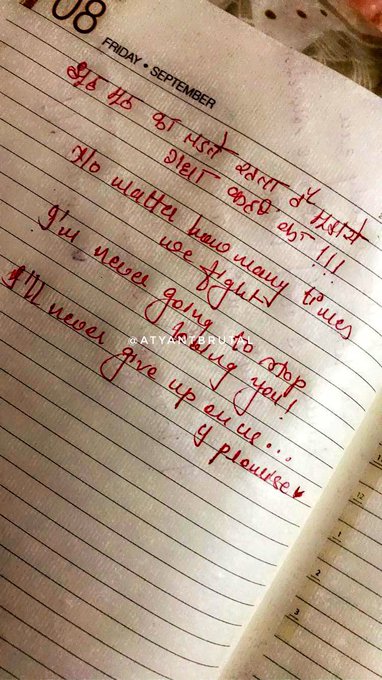 08
FRIDAY • SEPTEMBER
झूठ मूठ का
!!!
No matter how many times
we fight
I'm never going to stop
loving you!
@ATYANTBRUTAL
I'll never give up on us...
I promise
1
2
3